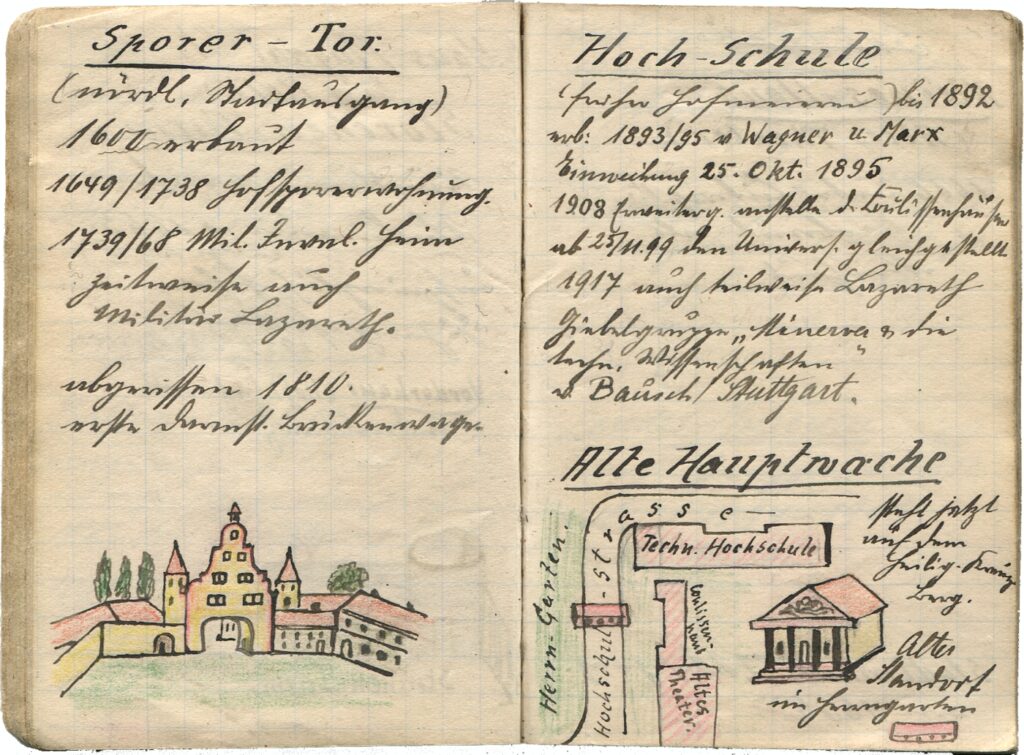 Sporer - Tor.
(nördl. Stadtausgang)
1600 erbaut
1649/1738 Hofsporerwohnung.
1739/68 Mil. Inval. Heim
zeitweise auch
Militär Lazareth.
abgerissen 1810.
erste Darmst. Brückenwage.
Hoch-Schule
(früher Hofmeierei) bis 1892
erb: 1893/95 v Wagner u Marx
Einweihung 25. Okt. 1895
1908 Erweiterg. anstelle d. Coulissenhäuser
ab 25/11.99 den Univers. gleichgestellt
1917 auch teilweise Lazareth
Giebelgruppe „Minerva & die
techn. Wissenschaften"
v. Bausch Stuttgart.
Alte Hauptwache
Hochschul-strasse
Techn. Hochschule
Herrn-Garten.
Coulissen-
haus
Altes
Theater.
steht jetzt
auf dem
Heilig. Kreuz
Berg.
Alter
Standort
im Herrngarten